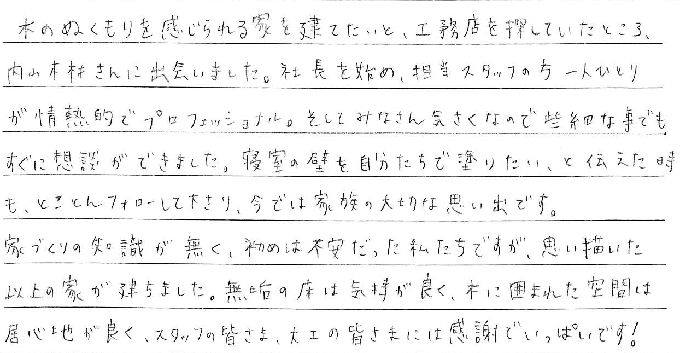 木のぬくもりを感じられる家を建てたいと、工務店を探していたところ、
内山木材さんに出会いました。社長を始め、担当スタッフの方一人ひとり
が情熱的でプロフェッショナル。そしてみなさん気さくなので些細な事でも
すぐに想談ができました。寝室の壁を自分たちで塗りたい、と伝えた時
も、とことんフォローして下さり、今では家族の大切な思い出です。
家づくりの知識が無く、初めは不安だった私たちですが、思い描いた
以上の家が建ちました。無垢の床は気持が良く、木に囲まれた空間は
居心地が良く、スタッフの皆さま、大工の皆さまには感謝でいっぱいです!